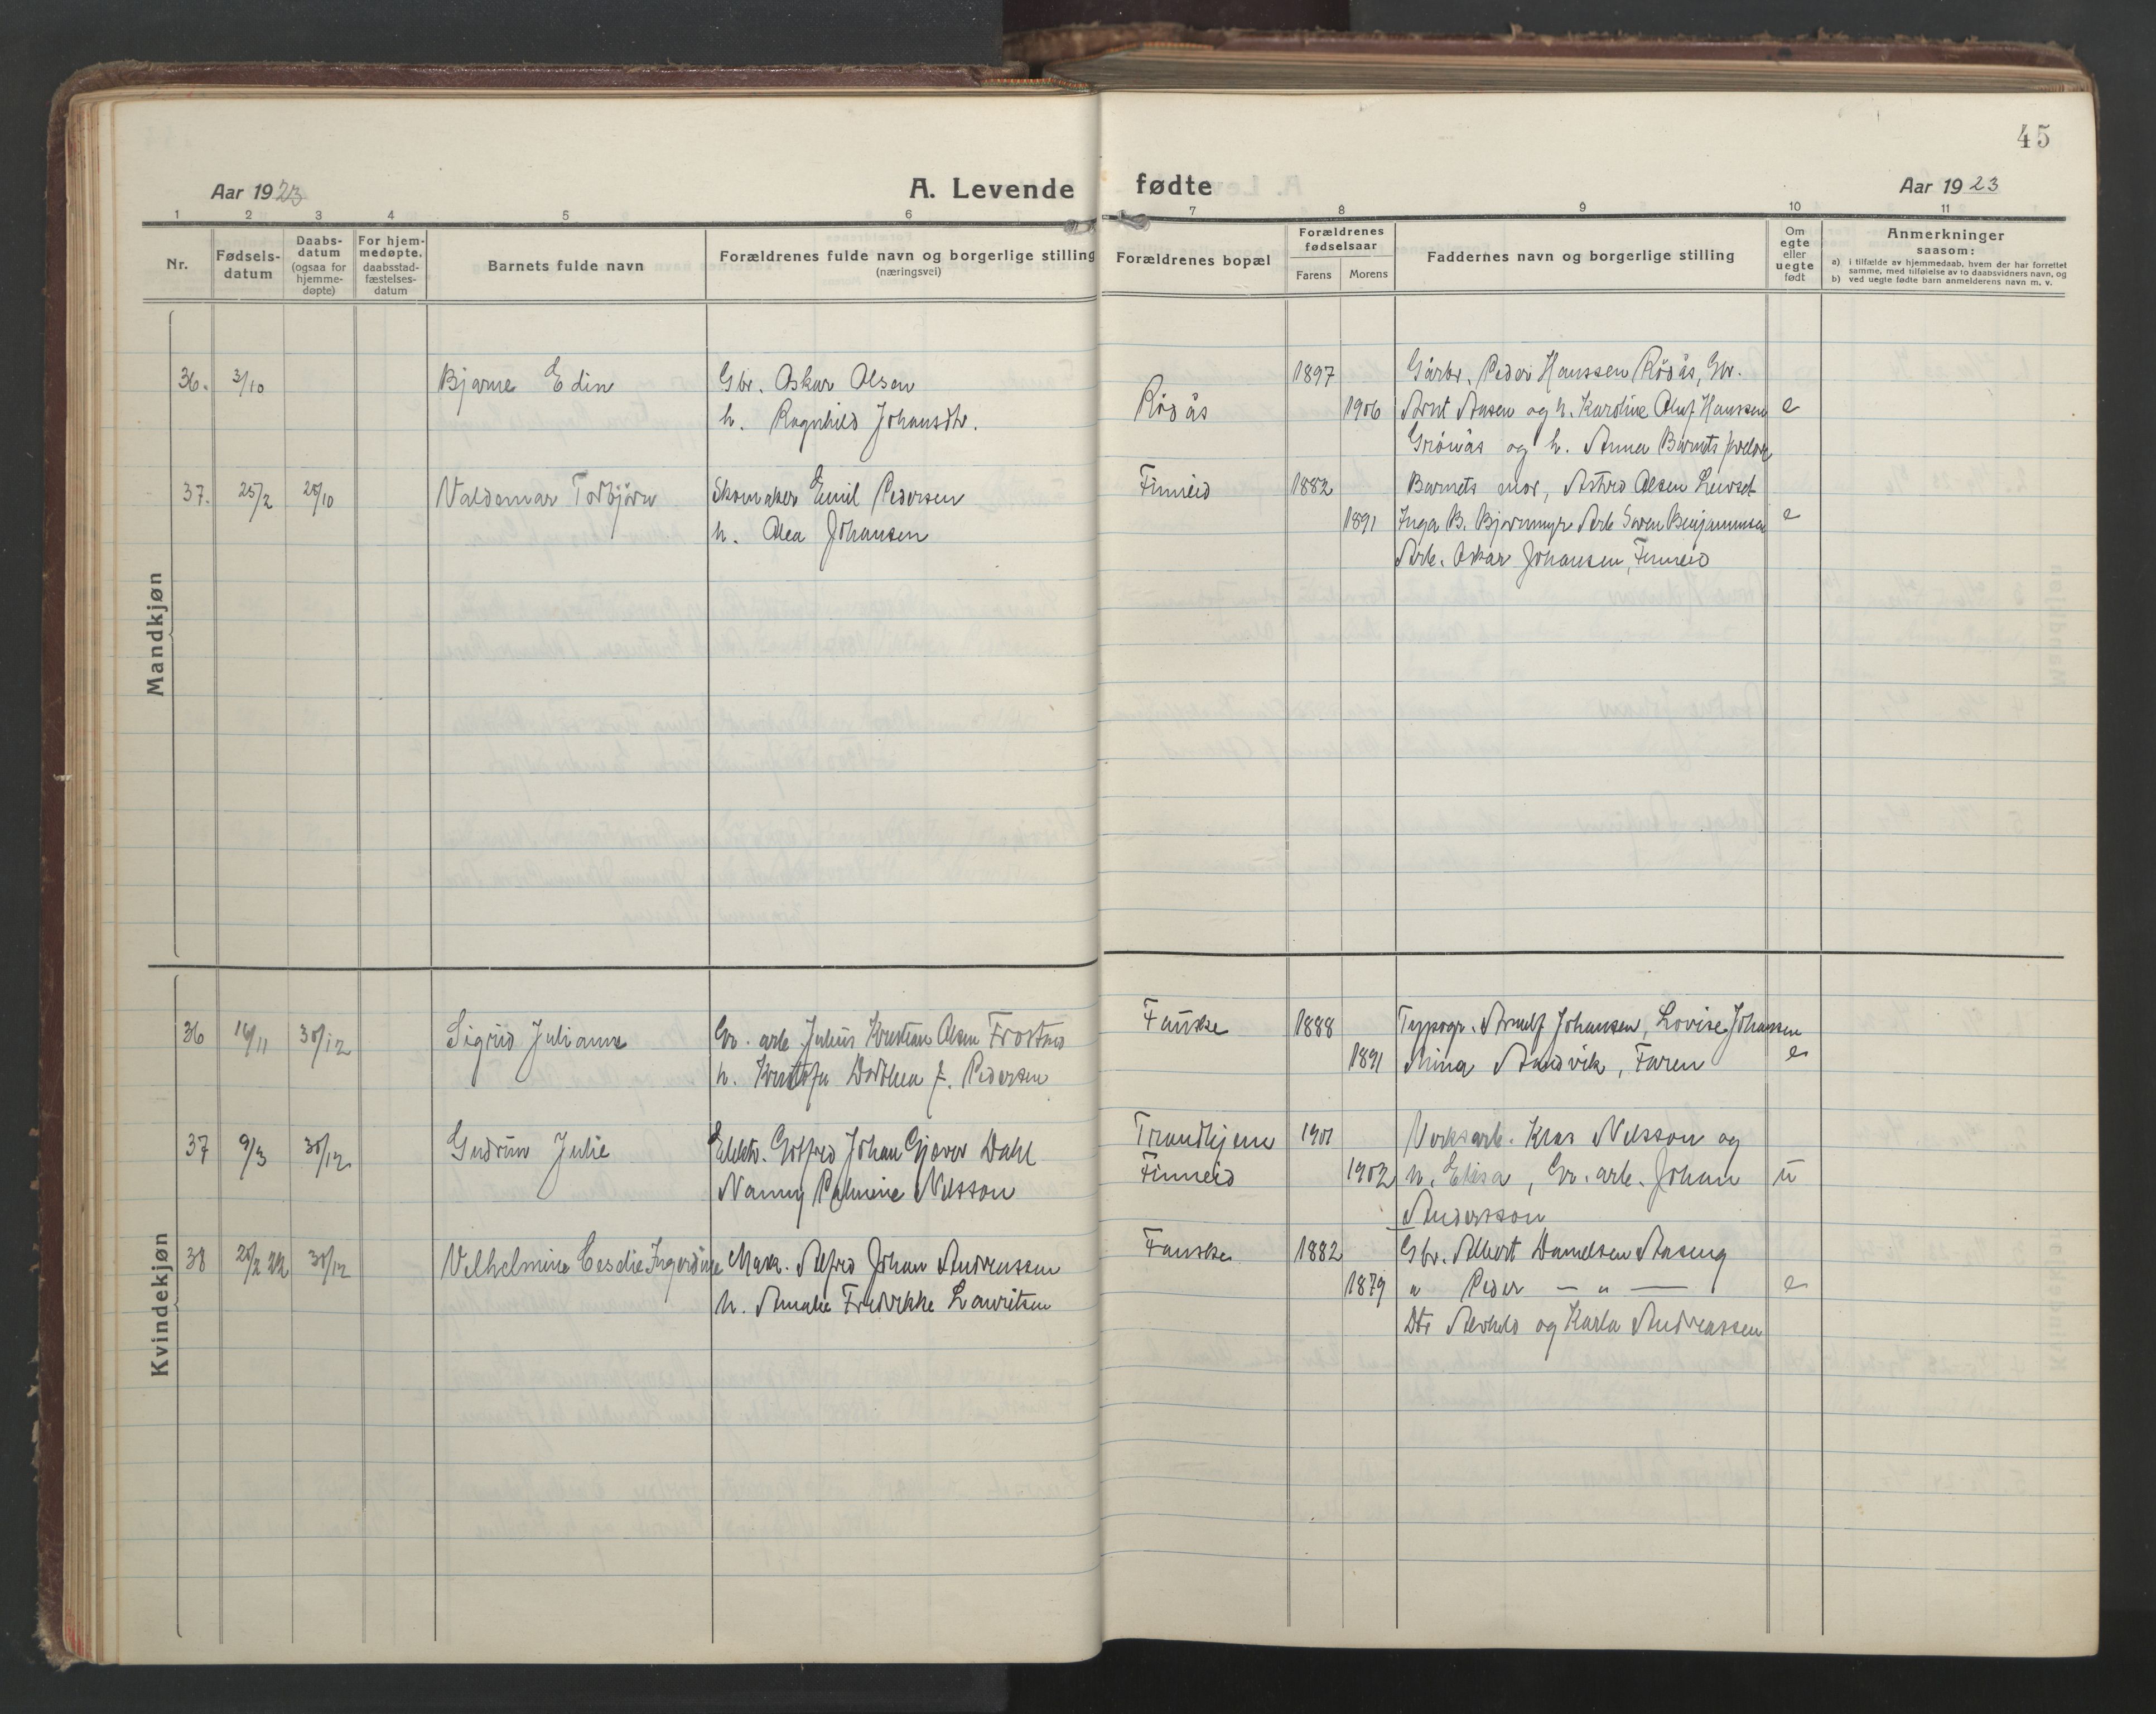 45
Aar 1923
A. Levende fødte
Aar 1923
1 2 3 4 5 6 7 8 9 10 11
Nr.
Fødsels-
datum
Daabs-
datum
(ogsaa for
hjemme-
døpte)
For hjem-
medøpte.
daabsstad-
fæstelses-
datum
Barnets fulde navn
Forældrenes fulde navn og borgerlige stilling
(næringsvei)
Forældrenes bopæl
Forældrenes
fødselsaar
Farens Morens
Faddernes navn og borgerlige stilling
Om
egte
eller
uegte
født
Anmerkninger
saasom:
a) i tilfælde av hjemmedaab, hvem der har forrettet
samme, med tilføielse av to daabsvidners navn, og
b) ved uegte fødte barn anmelderens navn m. v.
Mandkjøn
36. 3/10 Bjarne Edin Gbr. Oskar Olsen 1897 Gårbr. Peder Hanssen Rödås, Gbr.
h. Ragnhild Johansdtr. Rödås 1906 Arnt Aasen og h. Karoline Oluf Hanssen e
Grönås og h. Anna Barnets foreldre
37. 25/2 28/10 Valdemar Torbjörn Skomaker Emil Pedersen Finneid 1882 Barnets mor, Astrid Olsen Leivset
h. Alea Johansen 1891 Inga B. Bjørnmyr Arb Soren Benjaminsen e
Arb. Oskar Johansen, Finneid
Kvindekjøn
36 16/11 30/12 Sigrid Julianne Gr. arb. Julius Kristian Olsen Frostmo Fauske 1888 Typogr. Arnulf Johansen, Lovise Johansen
h. Kristofa Dorthea f. Pedersen 1891 Mina Sandvik, Faren e
37 9/3 30/12 Gudrun Julie Elektr. Gotfred Johan Gjøver Dahl Trondhjem 1901 Verksarb. Klas Nilsson og
Nanny Palmine Nilsson Finneid 1902 h. Elisa, Gr. arb. Johan u
Andersson
38 20/2 22 30/12 Vilhelmine Ceselie Ingerdine Mask. Alfred Johan Andreassen Fauske 1882 Gbr. Albert Danielsen Aaseng
h. Amalie Fredrikke Lauritsen 1879 " Peder — " — e
Dtr Alvhild og Karla Andreassen